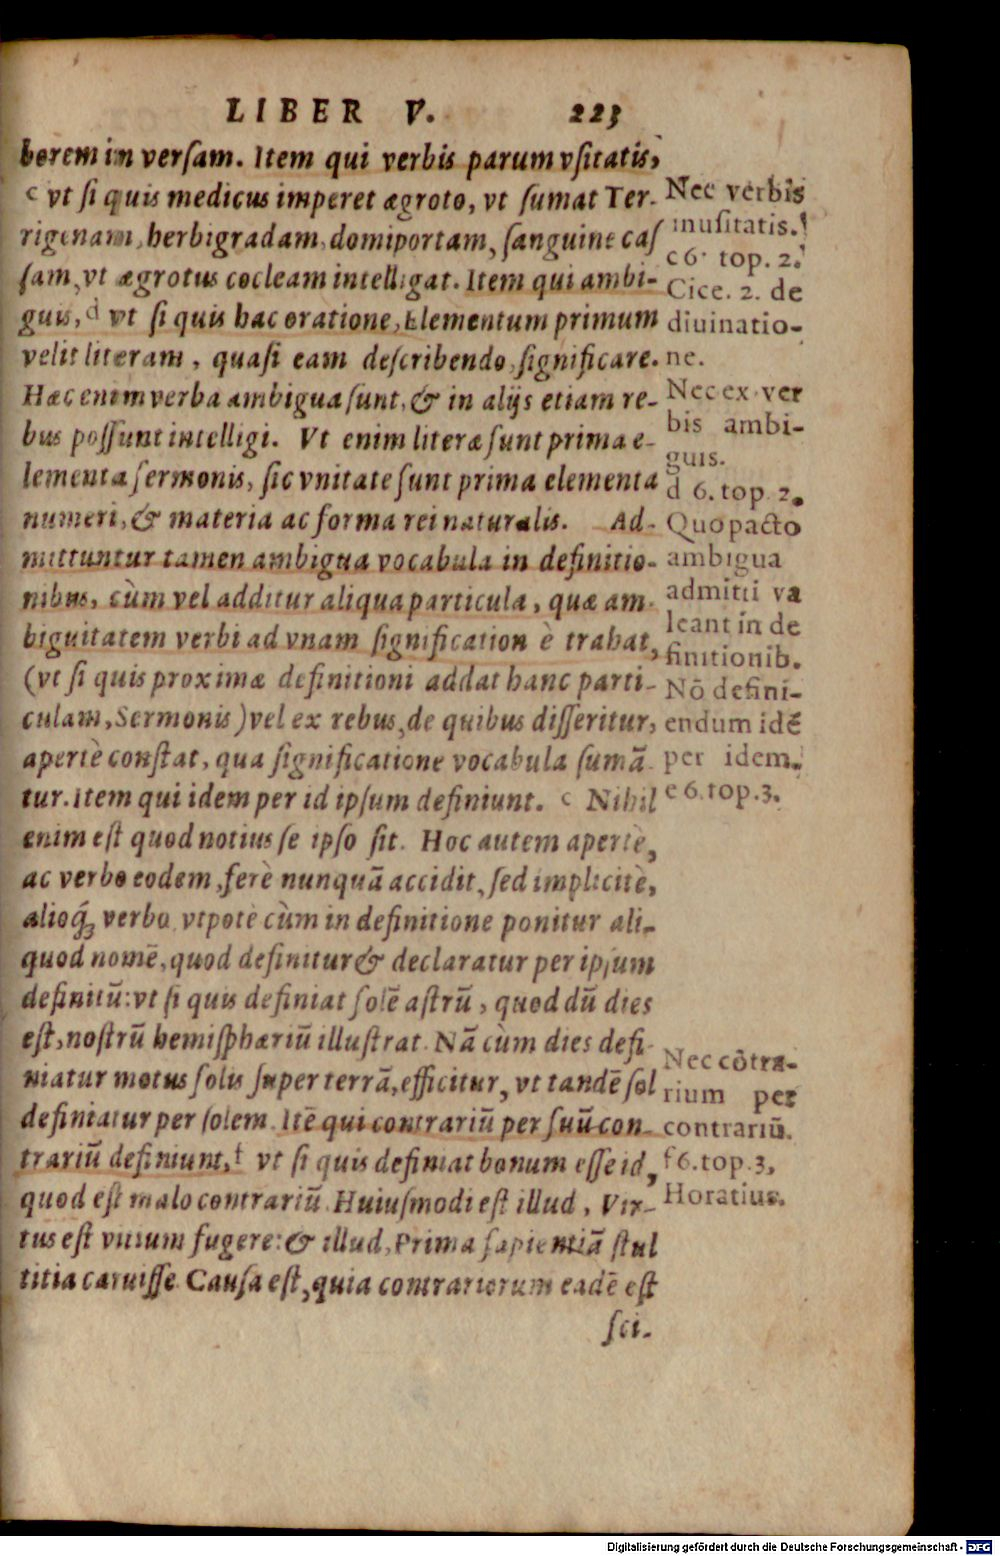 LIBER V. 223
borem in versam. Item qui verbis parum vsitatis,
c vt si quis medicus imperet ægroto, vt sumat Ter-
rigenam, herbigradam, domiportam, sanguine cas
sam, vt ægrotus cocleam intelligat. Item qui ambi-
guis, d vt si quis hac oratione, Elementum primum
velit literam, quasi eam describendo, significare.
Hæc enim verba ambigua sunt, & in alijs etiam re-
bus possunt intelligi. Vt enim literæ sunt prima e-
lementa sermonis, sic vnitate sunt prima elementa
numeri, & materia ac forma rei naturalis. Ad-
mittuntur tamen ambigua vocabula in definitio-
nibus, cùm vel additur aliqua particula, quæ am-
biguitatem verbi ad vnam signification è trahat,
(vt si quis proximæ definitioni addat hanc parti-
culam, Sermonis) vel ex rebus, de quibus disseritur,
apertè constat, qua significatione vocabula sumã-
tur. Item qui idem per id ipsum definiunt. e Nihil
enim est quod notius se ipso sit. Hoc autem apertè,
ac verbo eodem, ferè nunquã accidit, sed implicitè,
alioq́; verbo, vtpotè cùm in definitione ponitur ali-
quod nomẽ, quod definitur & declaratur per ipsum
definitũ: vt si quis definiat solẽ astrũ, quod dũ dies
est, nostrũ hemisphæriũ illustrat. Nã cùm dies defi-
niatur motus solis super terrã, efficitur, vt tandẽ sol
definiatur per solem. Itẽ qui contrariũ per suũ con-
trariũ definiunt, f vt si quis definiat bonum esse id,
quod est malo contrariũ. Huiusmodi est illud, Vir-
tus est vitium fugere: & illud, Prima sapientiã stul
titia caruisse. Causa est, quia contrariorum eadẽ est
sci-
Nec verbis
inusitatis.
c 6. top. 2.
Cice. 2. de
diuinatio-
ne.
Nec ex ver
bis ambi-
guis.
d 6. top. 2.
Quo pacto
ambigua
admitti va
leant in de
finitionib.
Nõ defini-
endum idẽ
per idem.
e 6. top. 3.
Nec cõtra-
rium per
contrariũ.
f 6. top. 3,
Horatius.
Digitalisierung gefördert durch die Deutsche Forschungsgemeinschaft - DFG